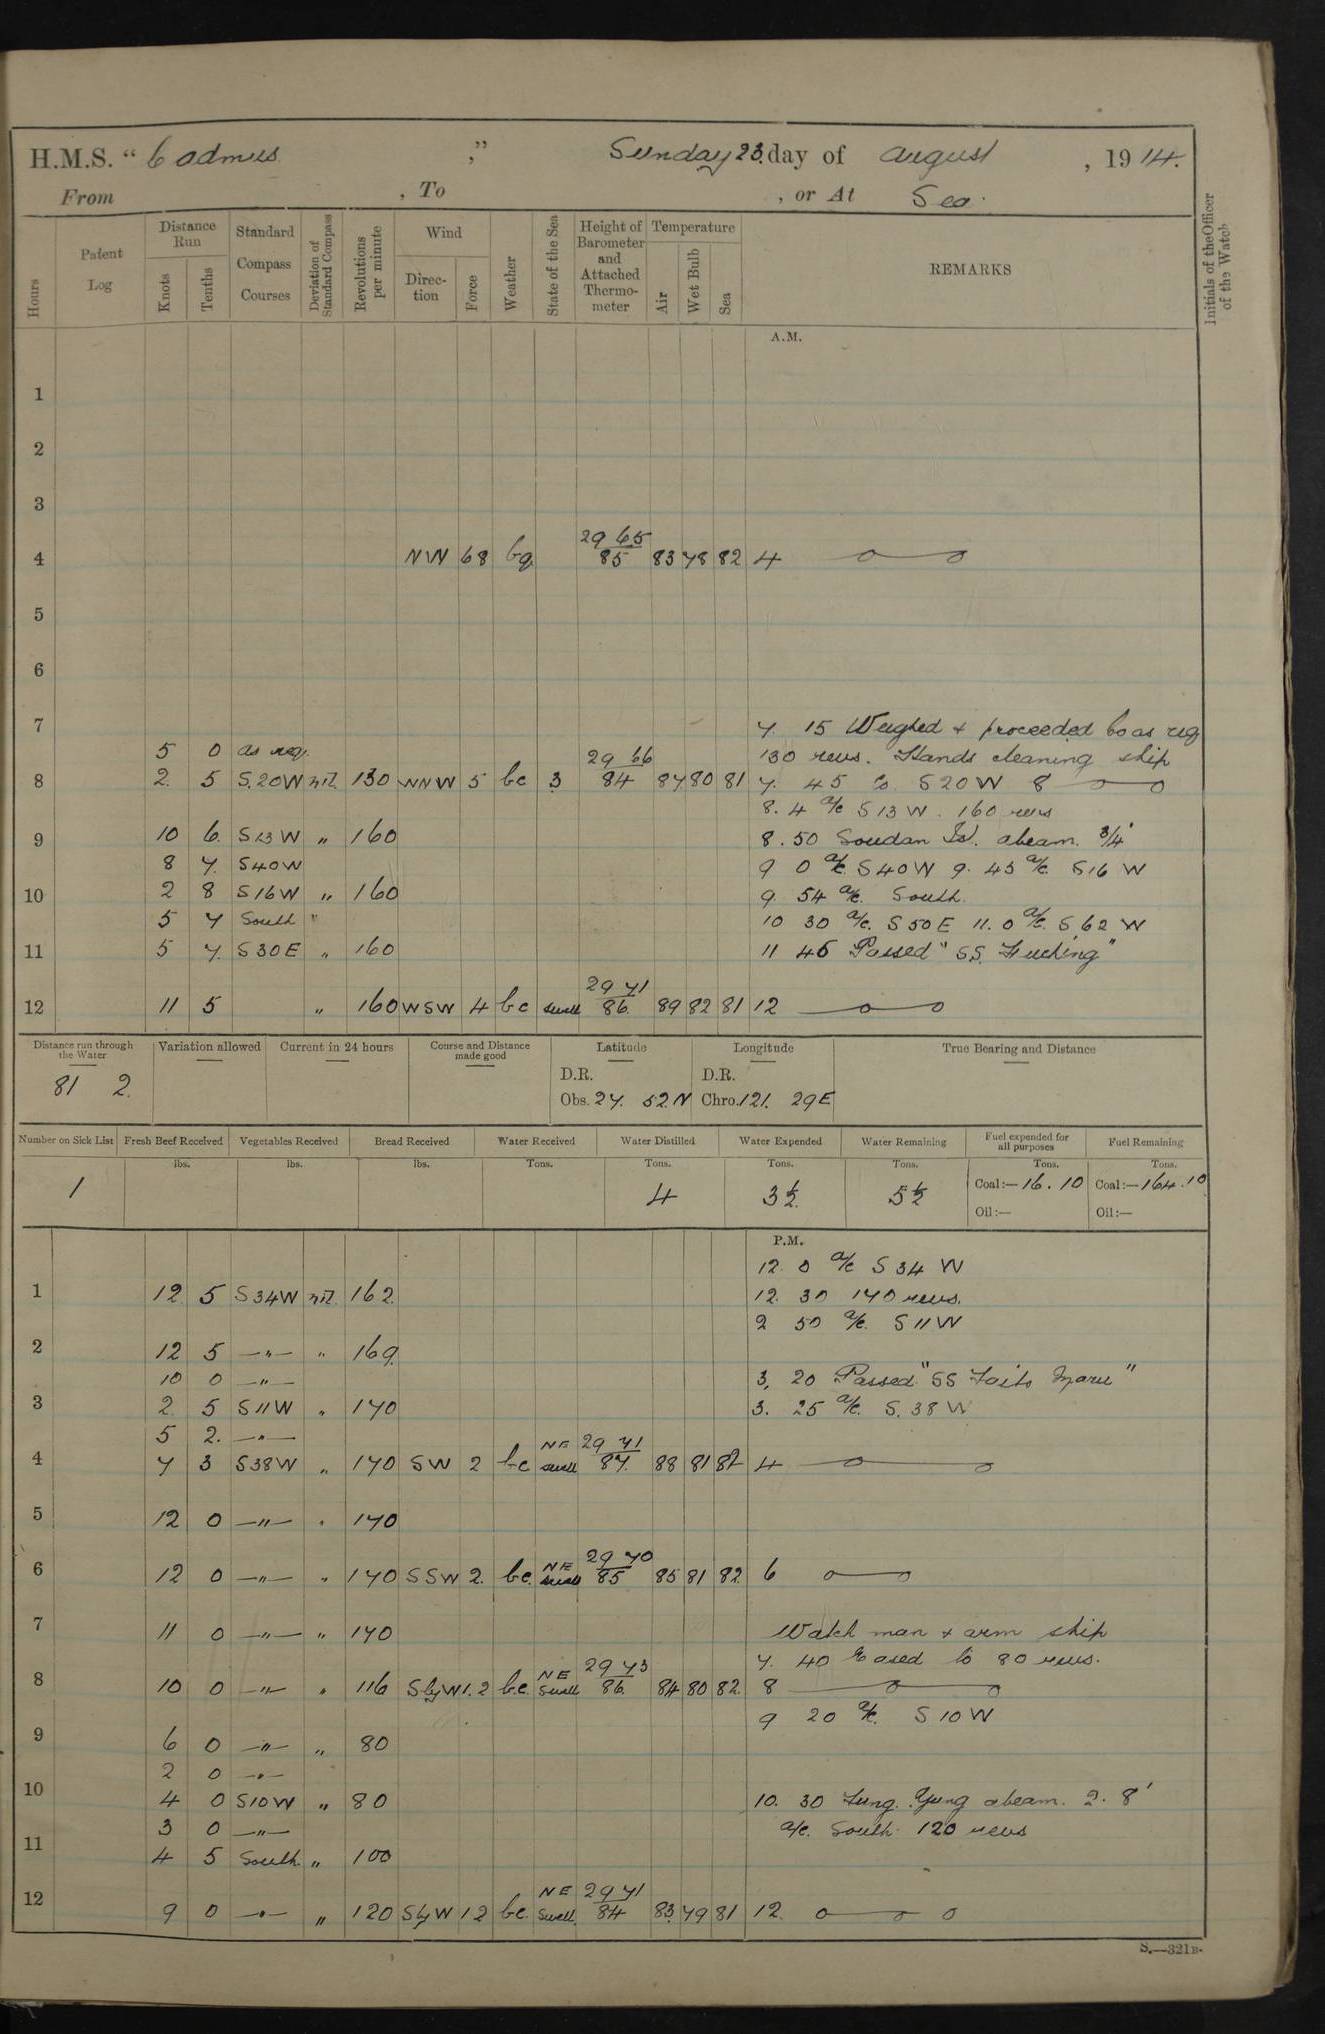 H.M.S. " Cadmus ," Sunday 23. day of August , 1914.
From , To , or At Sea.
Hours
Patent Log
Distance Run
Knots
Tenths
Standard Compass Courses
Deviation of Standard Compass
Revolutions per minute
Wind
Direction
Force
Weather
State of the Sea
Height of Barometer and Attached Thermometer
Temperature
Air
Wet Bulb
Sea
REMARKS
Initials of the Officer of the Watch
A.M.
1
2
3
29 65
4 NW 68 bq 85 83 78 82 4
5
6
7 7. 15 Weighed & proceeded Co as req
5 0 as req. 29 66 130 revs. Hands cleaning ship
8 2. 5 S.20W nil. 130 WNW 5 bc 3 84 87 80 81 7. 45 Co. S20W 8
8. 4 a/c S13W. 160 revs
9 10 6. S13W " 160 8. 50 Soudan Id. abeam. 3/4'
8 7. S40W 9 0 a/c. S40W 9. 45 a/c. S16 W
10 2 8 S16W " 160 9. 54 a/c. South.
5 7 South " 10 30 a/c. S50E 11. 0 a/c. S 62 W
11 5 7. S30E " 160 11 45 Passed "S.S. Fuching"
29 71
12 11 5 " 160 WSW 4 bc swell 86. 89 82 81 12
Distance run through the Water
Variation allowed
Current in 24 hours
Course and Distance made good
Latitude
Longitude
True Bearing and Distance
D.R. D.R.
81 2. Obs. 27. 52. N Chro. 121. 29 E
Number on Sick List
Fresh Beef Received
Vegetables Received
Bread Received
Water Received
Water Distilled
Water Expended
Water Remaining
Fuel expended for all purposes
Fuel Remaining
lbs. lbs. lbs. Tons. Tons. Tons. Tons. Tons. Tons.
1 4 3½ 5½ Coal:—16.10 Coal:—164.10
Oil:— Oil:—
P.M.
12. 0 a/c S34 W
1 12. 5 S34W nil. 162. 12. 30 170 revs.
2 50 a/c. S11W
2 12 5 —"— " 169.
10 0 —"— 3. 20 Passed "SS Maru"
3 2. 5 S11W " 170 3. 25 a/c. S. 38 W
5 2. —"— NE 29 71
4 7 3 S38W " 170 SW 2 bc swell 87. 88 81 82 4
5 12 0 —"— " 170
NE 29 70
6 12 0 —"— " 170 SSW 2. bc. swell 85 85 81 82 6
7 11 0 —"— " 170 Watch man & arm ship
NE 29 73 7. 40 Eased to 80 revs.
8 10 0 —"— " 116 SbyW 1.2 bc. Swell 86. 84 80 82. 8
9 20 a/c. S10W
9 6 0 —"— " 80
2 0 —"—
10 4 0 S10W " 80 10. 30 Tung Yung abeam. 2. 8'
3 0 —"— a/c. South. 120 revs
11 4 5 South. " 100
NE 29 71
12 9 0 —"— " 120 SbyW 12 bc. Swell. 84 83. 79 81 12.
S.—321B.